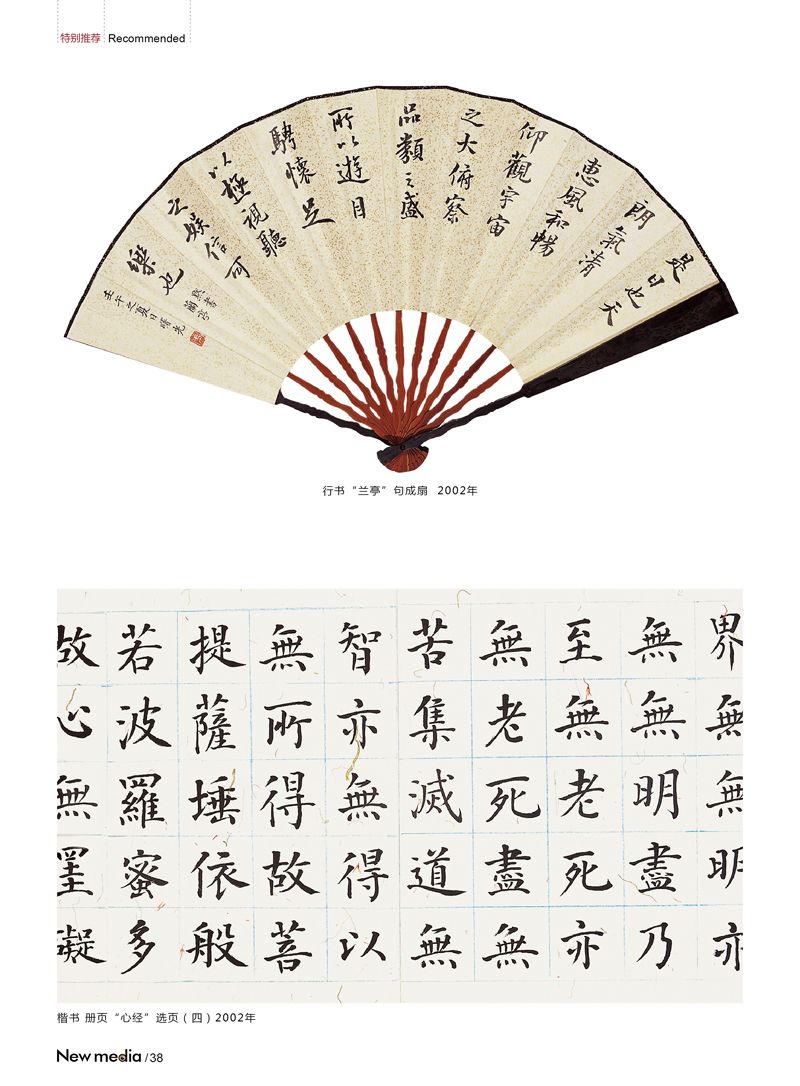 特别推荐 Recommended
是日也天
朗氣清
惠風和暢
仰觀宇宙
之大俯察
品類之盛
所以遊目
騁懷足
以極視聽
之娛信可
樂也
壬午之夏日曙光
行书“兰亭”句成扇 2002年
界無無明亦
無無明盡乃
至無老死亦
無老死盡無
苦集滅道無
智亦無得以
無所得故菩
提薩埵依般
若波羅蜜多
故心無罣礙
楷书 册页“心经”选页（四）2002年
New media /38